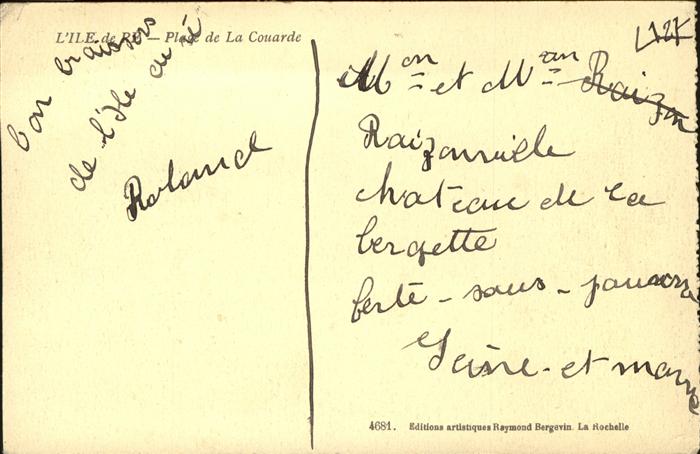 L'ILE de RÉ — Plage de La Couarde
bon baissers
de l'île au é
Roland
127
Mon et Man Raizon
Raizonville
chateau de la
bergette
ferté - sous - jouarre
Seine - et marne
4681. Editions artistiques Raymond Bergevin. La Rochelle